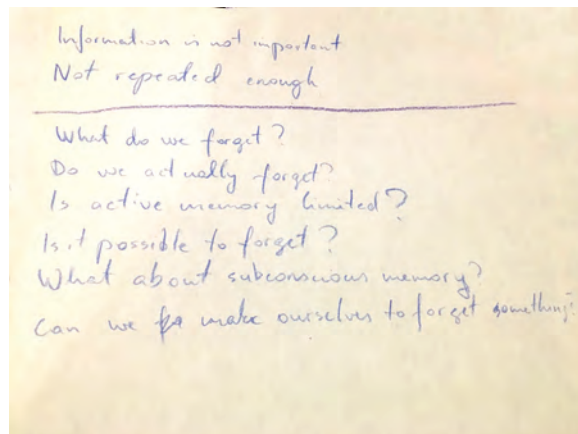 Information is not important
Not repeated enough
What do we forget?
Do we actually forget?
Is active memory limited?
Is it possible to forget?
What about subconscious memory?
Can we make ourselves to forget something?